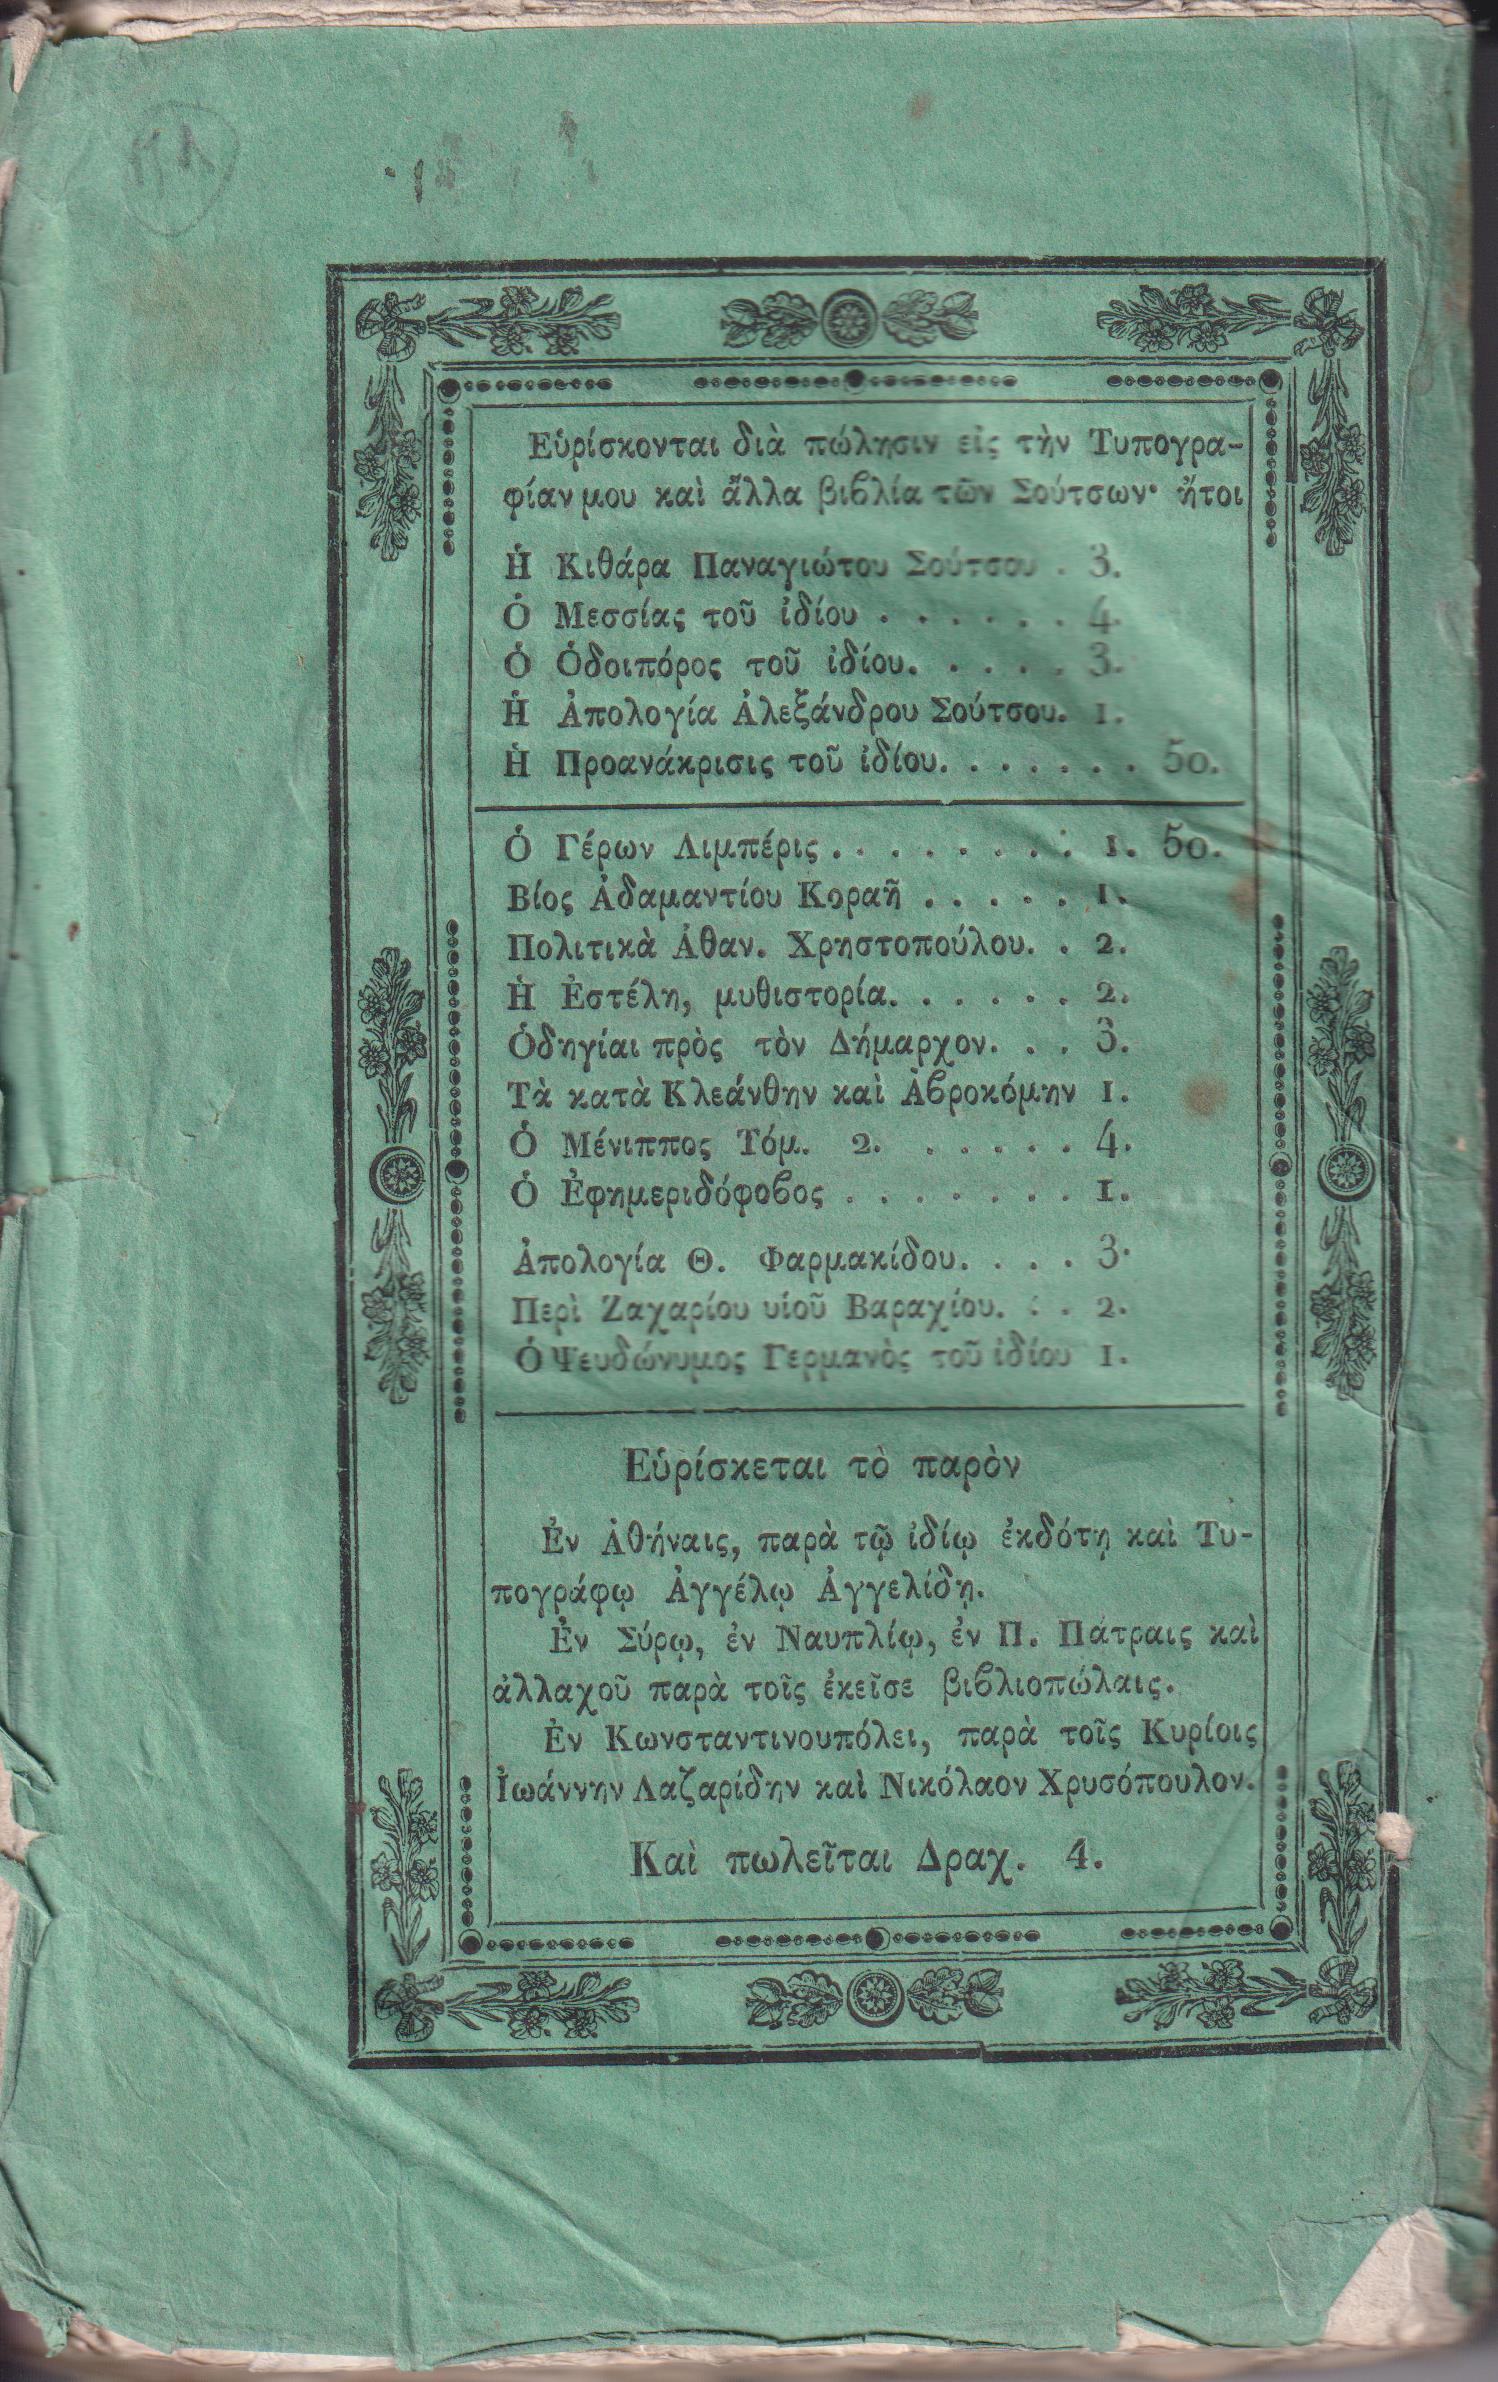 Εὑρίσκονται διὰ πώλησιν εἰς τὴν Τυπογρα-
φίαν μου καὶ ἄλλα βιϐλία τῶν Σούτσων· ἤτοι
Ἡ Κιθάρα Παναγιώτου Σούτσου . 3.
Ὁ Μεσσίας τοῦ ἰδίου . . . . . . 4.
Ὁ Ὁδοιπόρος τοῦ ἰδίου. . . . . 3.
Ἡ Ἀπολογία Ἀλεξάνδρου Σούτσου. 1.
Ἡ Προανάκρισις τοῦ ἰδίου. . . . . . . 50.
Ὁ Γέρων Λιμπέρις . . . . . . . . 1. 50.
Βίος Ἀδαμαντίου Κοραῆ . . . . . 1.
Πολιτικὰ Ἀθαν. Χρηστοπούλου. . 2.
Ἡ Ἐστέλη, μυθιστορία. . . . . . 2.
Ὁδηγίαι πρὸς τὸν Δήμαρχον. . . 3.
Τὰ κατὰ Κλεάνθην καὶ Ἁϐροκόμην 1.
Ὁ Μένιππος Τόμ. 2. . . . . . . 4.
Ὁ Ἐφημεριδόφοϐος . . . . . . . 1.
Ἀπολογία Θ. Φαρμακίδου. . . . . 3.
Περὶ Ζαχαρίου υἱοῦ Βαραχίου. . . 2.
Ὁ Ψευδώνυμος Γερμανὸς τοῦ ἰδίου 1.
Εὑρίσκεται τὸ παρὸν
Ἐν Ἀθήναις, παρὰ τῷ ἰδίῳ ἐκδότῃ καὶ Τυ-
πογράφῳ Ἀγγέλῳ Ἀγγελίδῃ.
Ἐν Σύρῳ, ἐν Ναυπλίῳ, ἐν Π. Πάτραις καὶ
ἀλλαχοῦ παρὰ τοῖς ἐκεῖσε βιϐλιοπώλαις.
Ἐν Κωνσταντινουπόλει, παρὰ τοῖς Κυρίοις
Ἰωάννην Λαζαρίδην καὶ Νικόλαον Χρυσόπουλον.
Καὶ πωλεῖται Δραχ. 4.